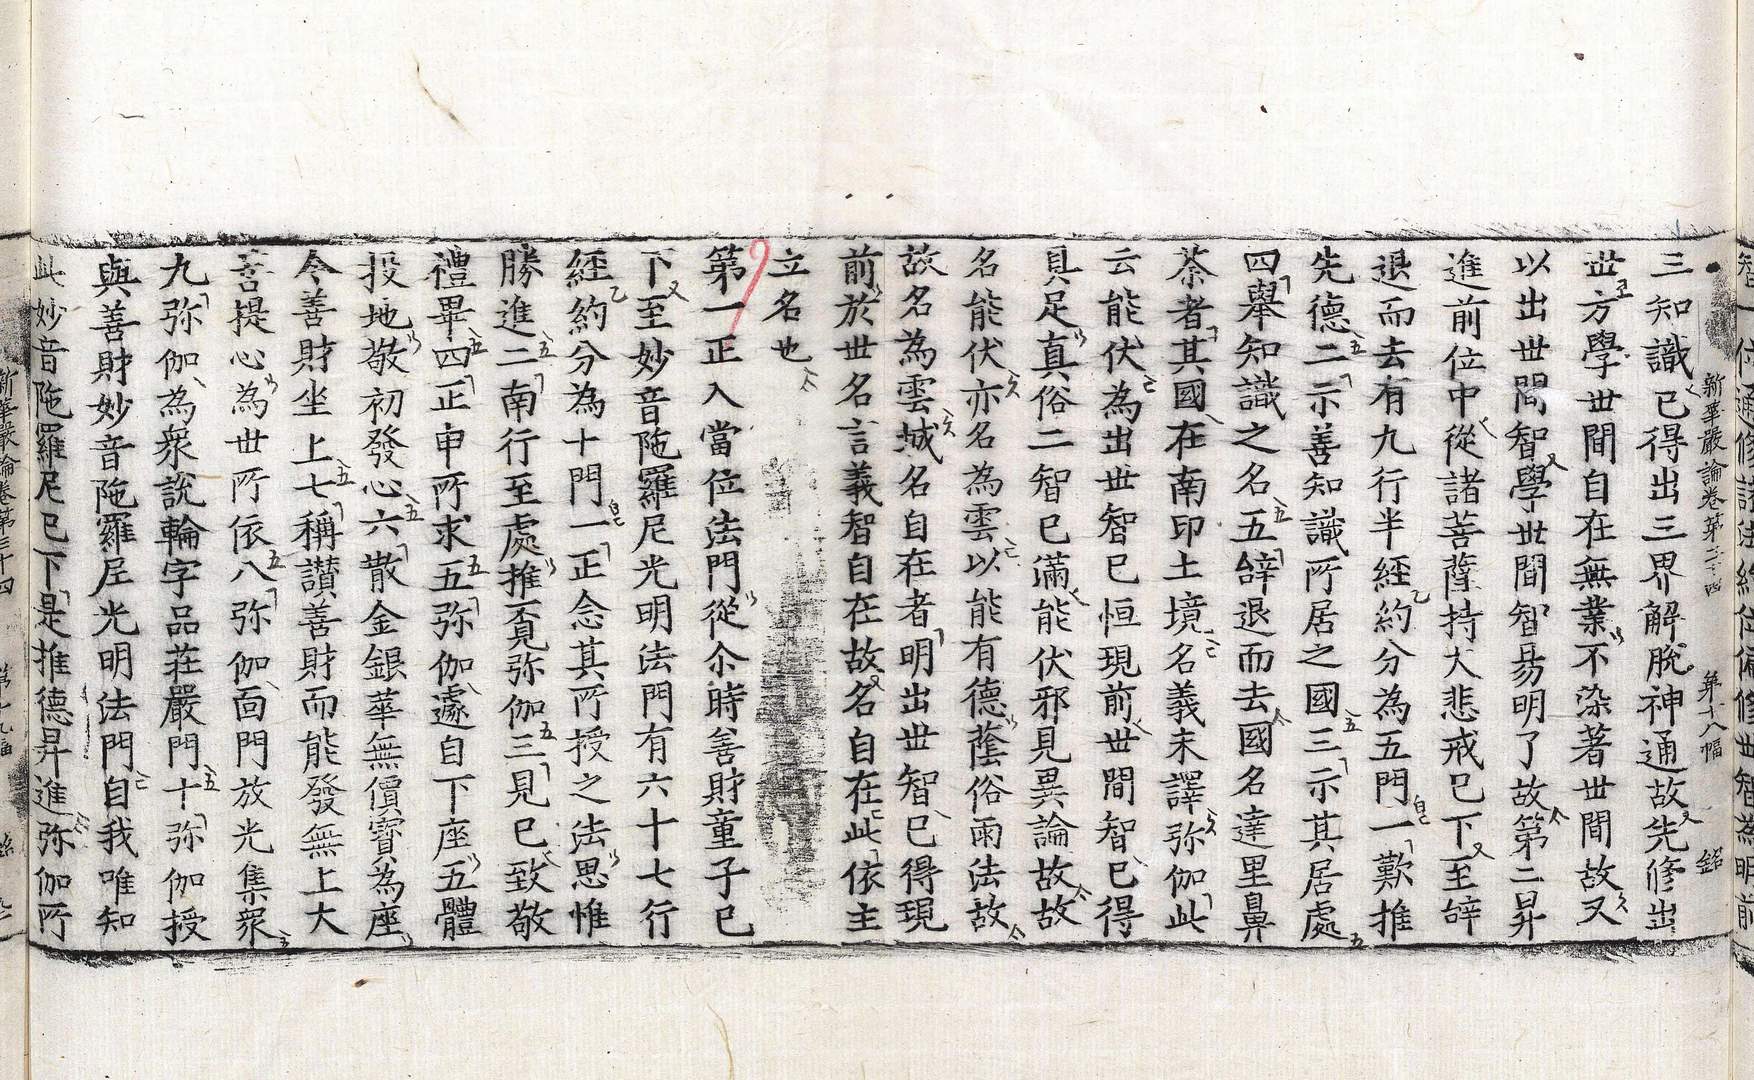 智一位通修諸法総位偏修世智為明前
新華嚴論卷第三十四 第十八幅 銘
三知識已得出三界解脫神通故先修出
世方學世間自在無業不染著世間故又
以出世間智學世間智易明了故第二昇
進前位中從諸菩薩持大悲戒已下至辝
退而去有九行半經約分為五門一歎推
先德二示善知識所居之國三示其居處
四舉知識之名五辝退而去國名達里鼻
荼者其國在南印土境名義未譯弥伽此
云能伏為出世智已恒現前世間智已得
具足真俗二智已滿能伏邪見異論故故
名能伏亦名為雲以能有德蔭俗雨法故
故名為雲城名自在者明出世智已得現
前於世名言義智自在故名自在此依主
立名也
第一正入當位法門從尒時善財童子已
下至妙音陁羅尼光明法門有六十七行
經約分為十門一正念其所授之法思惟
勝進二南行至處推覓弥伽三見已致敬
禮畢四正申所求五弥伽遽自下座五體
投地敬初發心六散金銀華無價寶為座
令善財坐上七稱讃善財而能發無上大
菩提心為世所依八弥伽面門放光集衆
九弥伽為衆說輪字品荘嚴門十弥伽授
與善財妙音陁羅尼光明法門自我唯知
此妙音陁羅尼已下是推德昇進弥伽所
新華嚴論卷第三十四 第十九幅